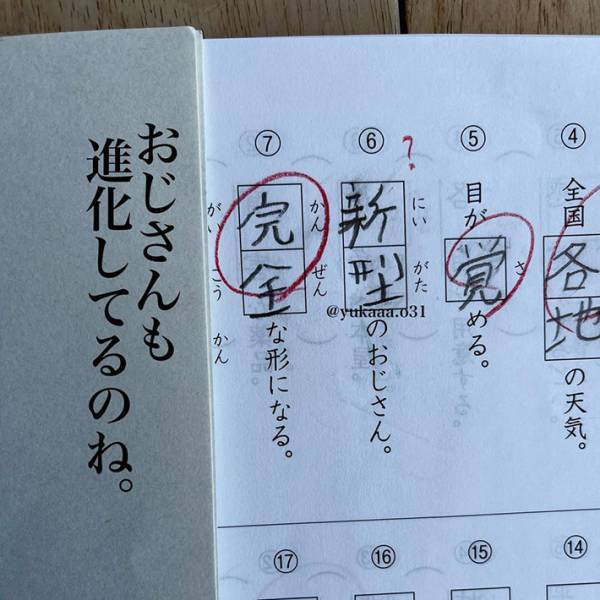 ④
全国各地の天気。
⑤
目が覚める。
さ
?
⑥
新型のおじさん。
にい がた
⑦
完全な形になる。
かん ぜん
がい こう かん
@yukaaa.o31
⑭
⑮
⑯
⑰
おじさんも
進化してるのね。